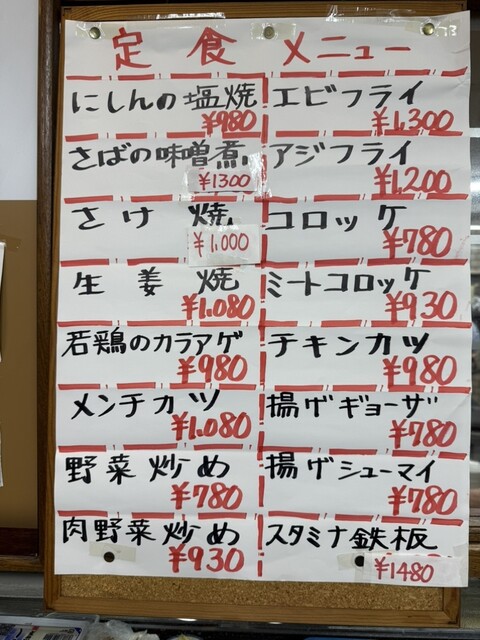 定食 メニュー
にしんの塩焼 ¥980
エビフライ ¥1,300
さばの味噌煮 ¥1300
アジフライ ¥1,200
さけ焼 ¥1,000
コロッケ ¥780
生姜焼 ¥1,080
ミートコロッケ ¥930
若鶏のカラアゲ ¥980
チキンカツ ¥980
メンチカツ ¥1,080
揚げギョーザ ¥780
野菜炒め ¥780
揚げシューマイ ¥780
肉野菜炒め ¥930
スタミナ鉄板 ¥1480